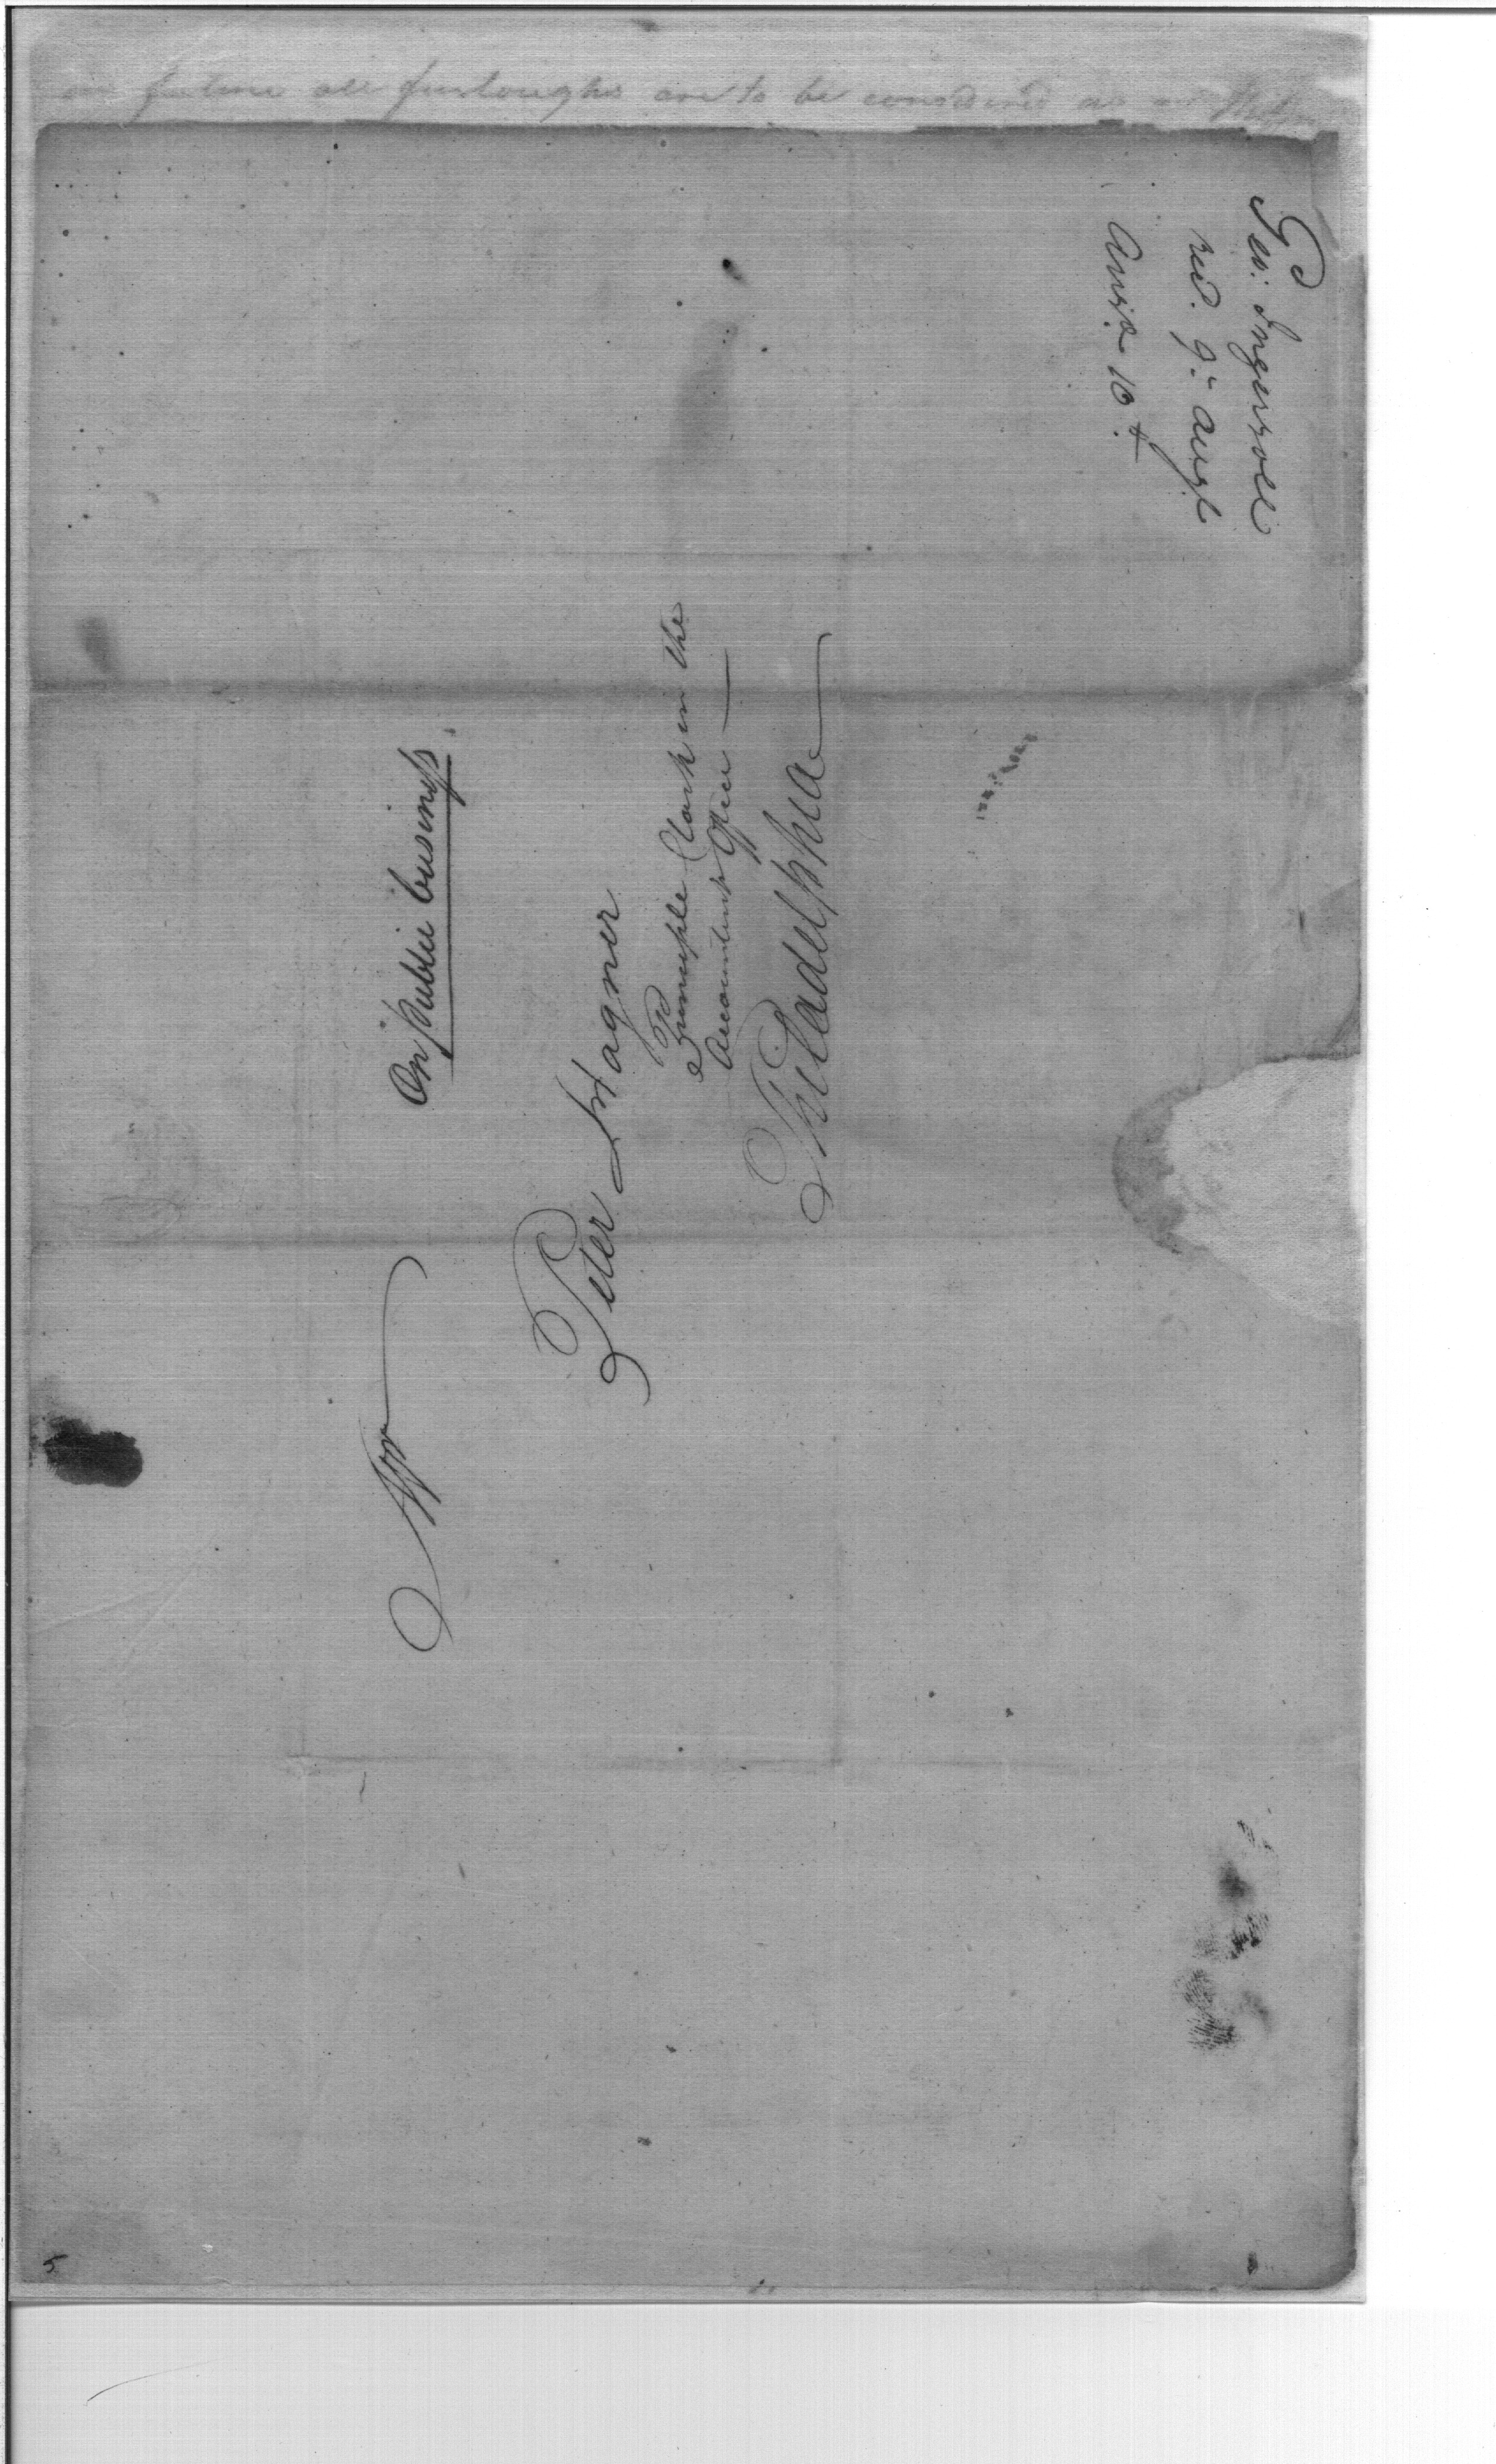 future all furloughs are to be considered as
Geo: Ingersoll
recd. 9th augt
Answd 10th
On public business
Mr
Peter Hagner
Principle Clark in the
Accountants Office
Philadelphia
5